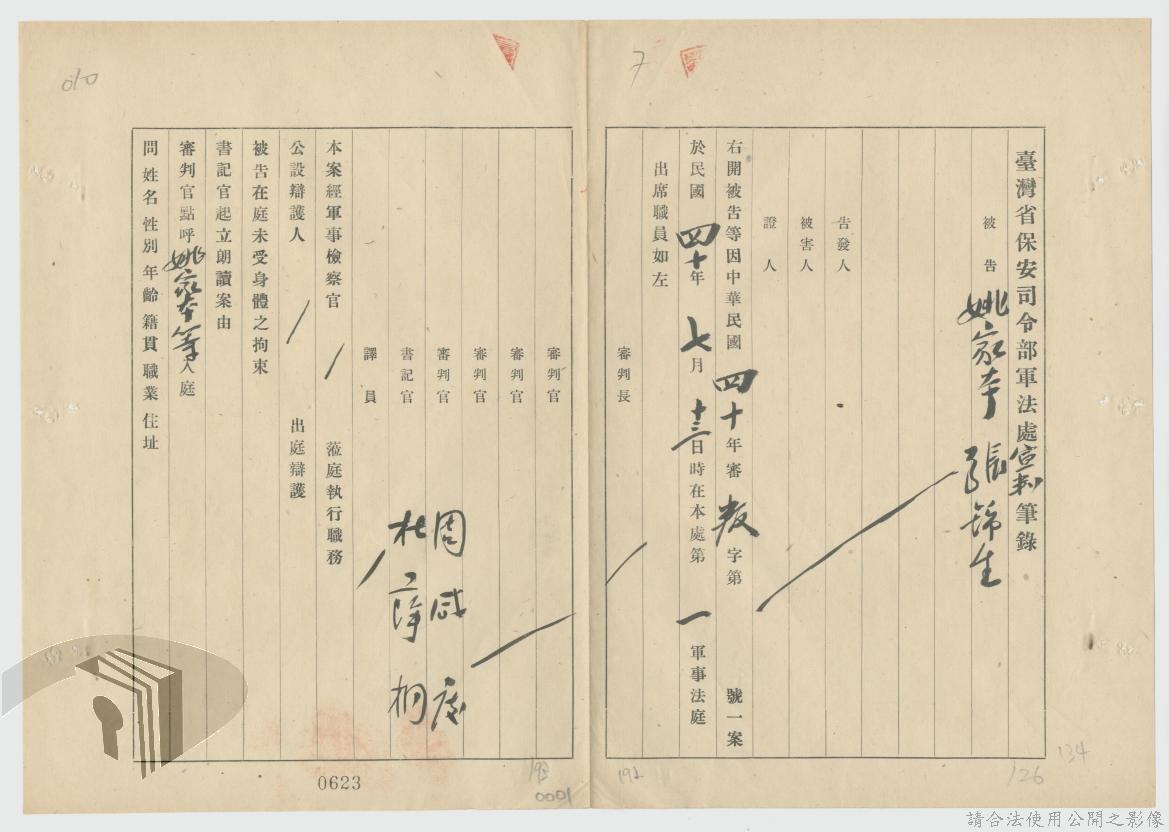 臺灣省保安司令部軍法處宣判筆錄
被告 姚家本 張錦生
告發人
被害人
證人
右開被告等因中華民國四十年審叛字第 號一案
於民國四十年七月十三日時在本處第一軍事法庭
出席職員如左
審判長
審判官
審判官
審判官
審判官 周咸慶
書記官 杜 桐
譯員
本案經軍事檢察官 蒞庭執行職務
公設辯護人 出庭辯護
被告在庭未受身體之拘束
書記官起立朗讀案由
審判官點呼姚家本等入庭
問姓名性別年齡籍貫職業住址
7
010
0623
193
0001
192
126
134
請合法使用公開之影像